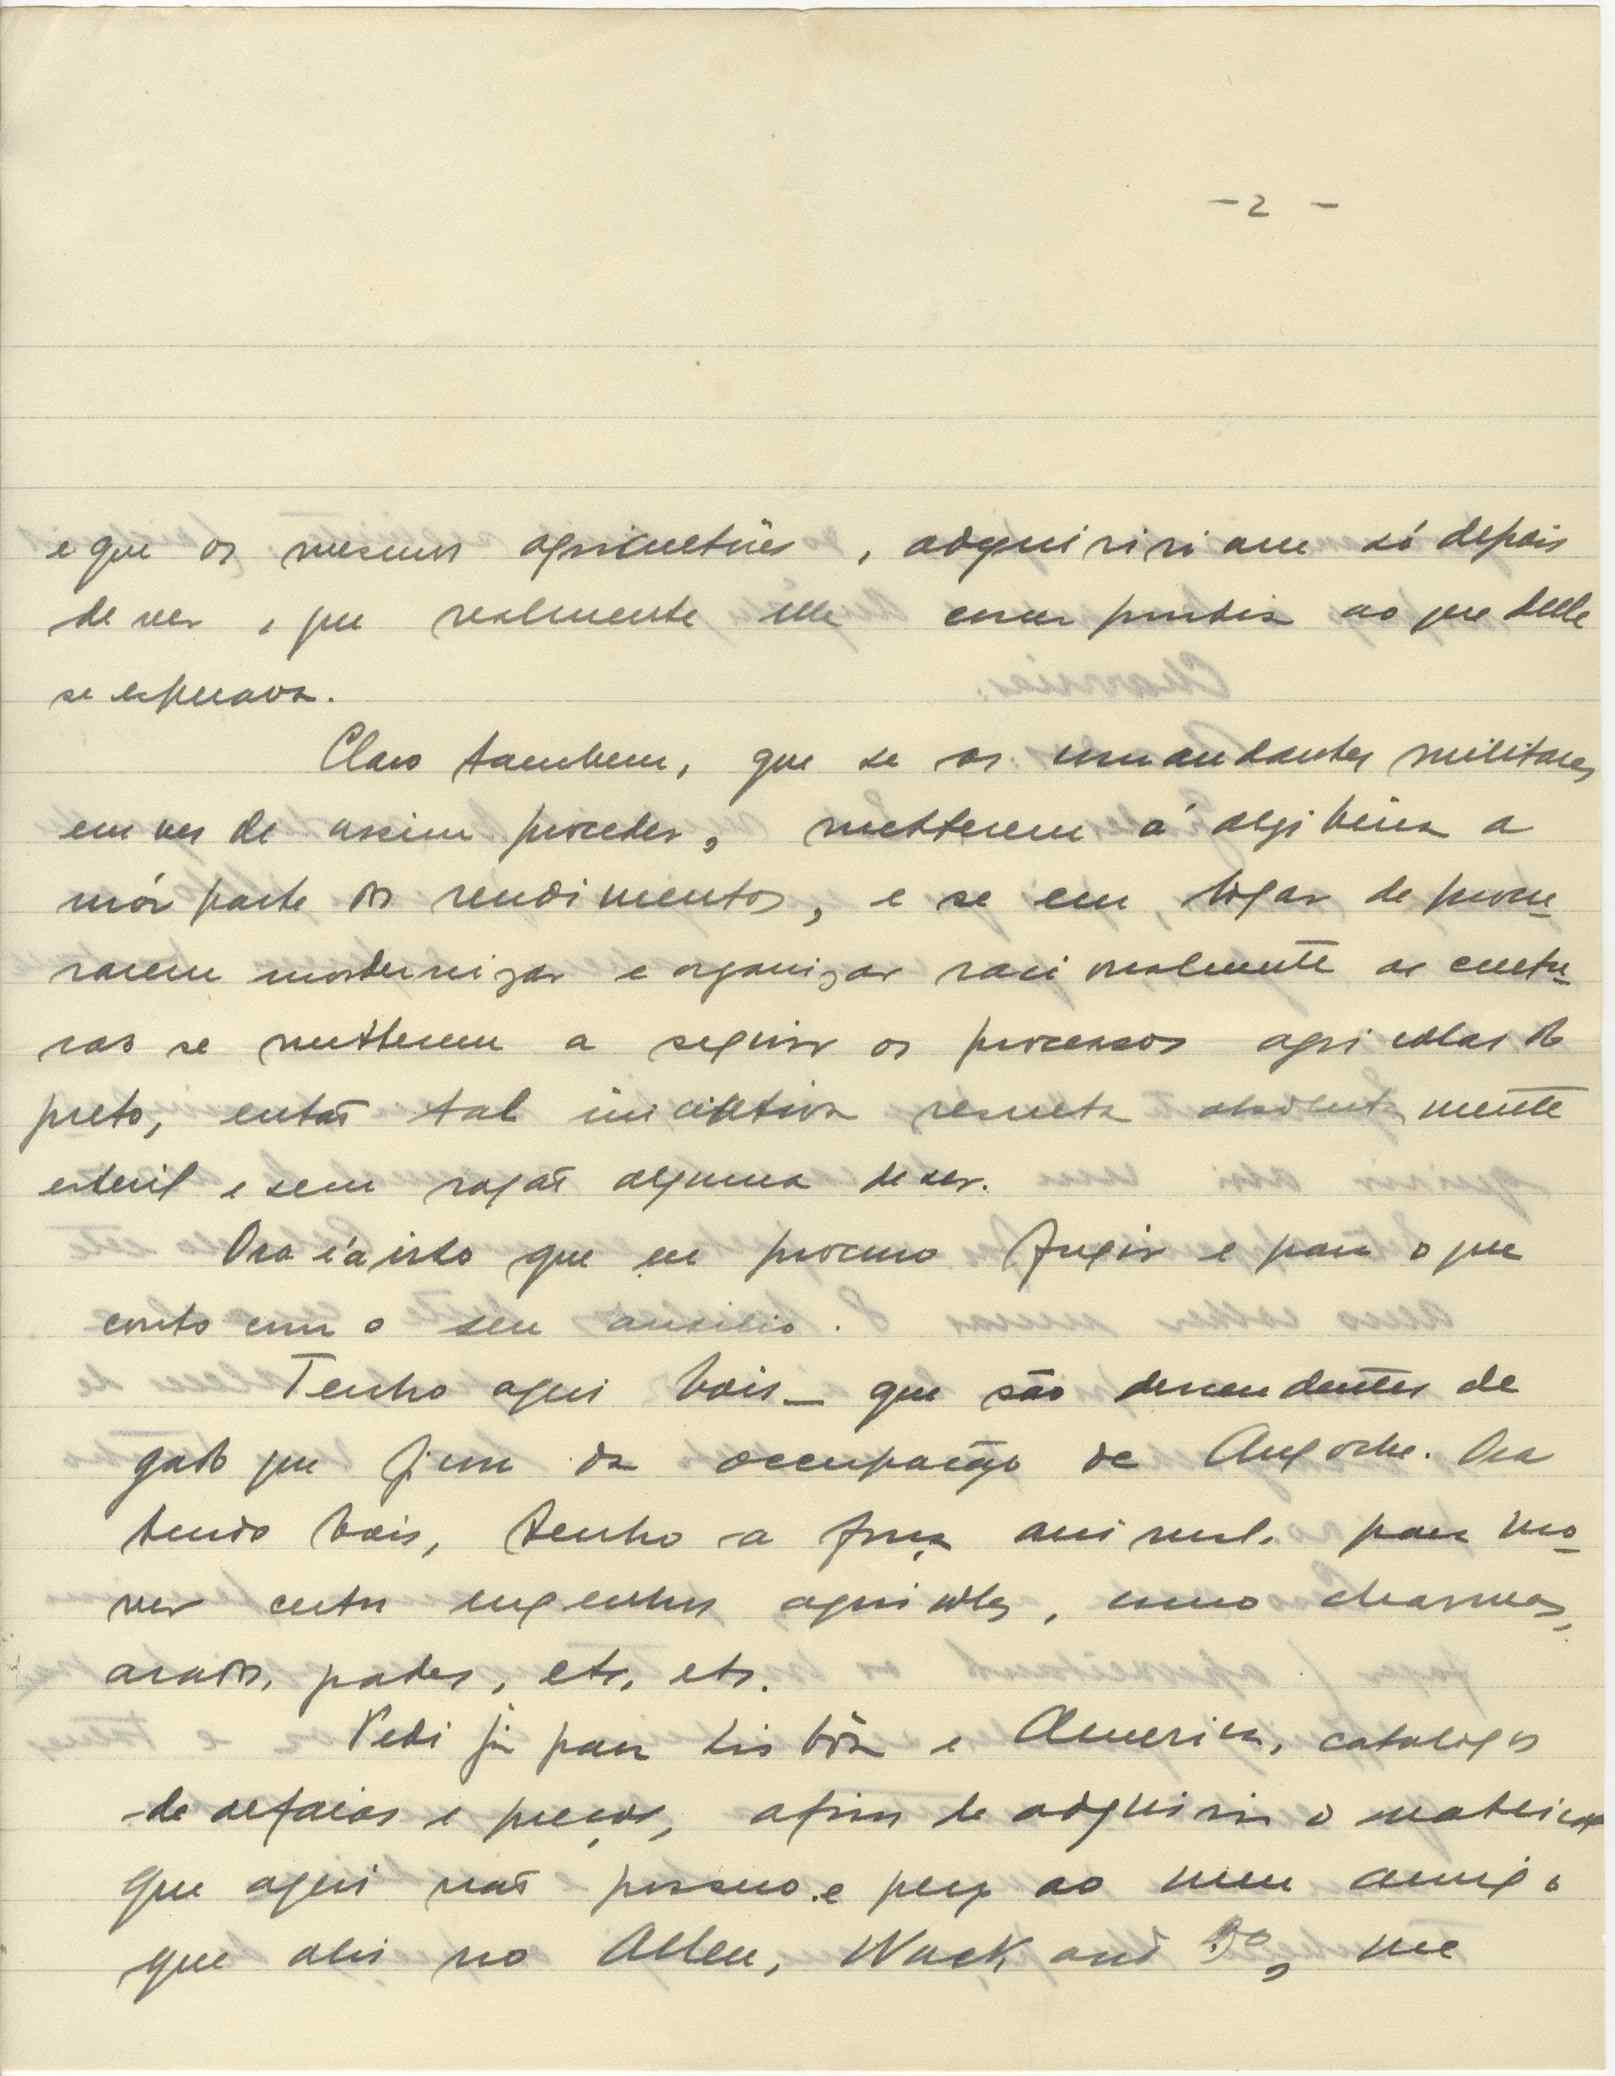 - 2 -
e que os mesmos agricultores, adquiririam só depois
de ver, que realmente elle correspondia ao que delle
se esperava.
Claro tambem, que se os comandantes militares
em ves de assim proceder, metterem á algibeira a
mór parte dos rendimentos, e se em logar de procu-
rarem mordernizar e organizar racionalmente as cultu-
ras se metterem a seguir os processos agricolas do
preto, então tal iniciativa resulta absolutamente
esteril e sem razão alguma de ser.
Ora é a isto que eu procuro fugir e para o que
conto com o seu auxilio.
Tenho aqui bois - que são descendentes de
gado que ficou da occupação de Angoche. Ora
tendo bois, tenho a força animal para mo-
ver certos engenhos agricolas, como charruas,
arados, grades, etc, etc.
Pedi já para Lisbôa e America, catalogos
de alfaias e preços, afim de adquirir o material
que aqui não possuo e peço ao meu amigo
que ahi no Allen, Wack and Co, me